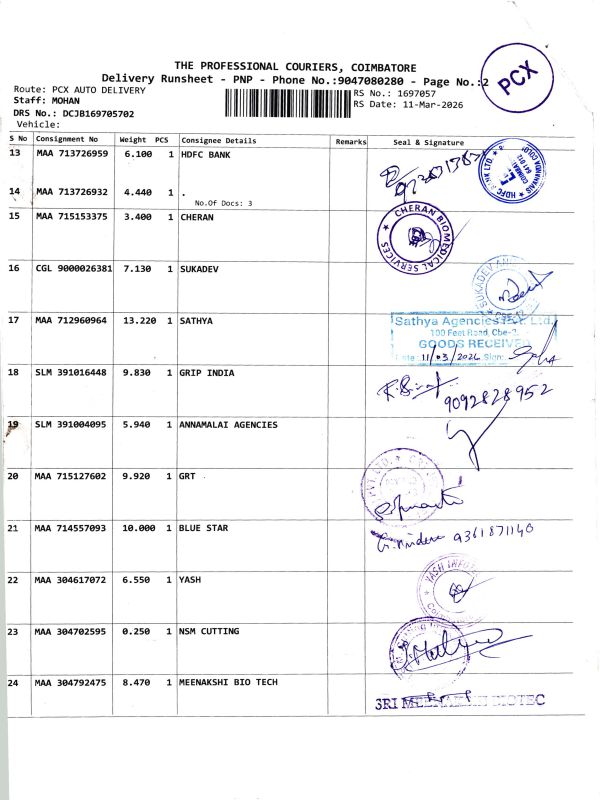 THE PROFESSIONAL COURIERS, COIMBATORE
Delivery Runsheet - PNP - Phone No.:9047080280 - Page No.:2
PCX
Route: PCX AUTO DELIVERY
RS No.: 1697057
Staff: MOHAN
RS Date: 11-Mar-2026
DRS No.: DCJB169705702
Vehicle:
S No Consignment No Weight PCS Consignee Details Remarks Seal & Signature
13 MAA 713726959 6.100 1 HDFC BANK
HDFC BANK LTD.
14 MAA 713726932 4.440 1 .
No.Of Docs: 3
15 MAA 715153375 3.400 1 CHERAN
CHERAN BIOMEDICAL SERVICES
16 CGL 9000026381 7.130 1 SUKADEV
SUKADEV
17 MAA 712960964 13.220 1 SATHYA
Sathya Agencies Pvt. Ltd.
100 Feet Road, Cbe-2.
GOODS RECEIVED
Date: 11/03/2026 Sign:
18 SLM 391016448 9.830 1 GRIP INDIA
9092828952
19 SLM 391004095 5.940 1 ANNAMALAI AGENCIES
20 MAA 715127602 9.920 1 GRT
PVT. LTD.
21 MAA 714557093 10.000 1 BLUE STAR
9361871140
22 MAA 304617072 6.550 1 YASH
YASH
23 MAA 304702595 0.250 1 NSM CUTTING
24 MAA 304792475 8.470 1 MEENAKSHI BIO TECH
SRI MEENAKSHI BIOTEC